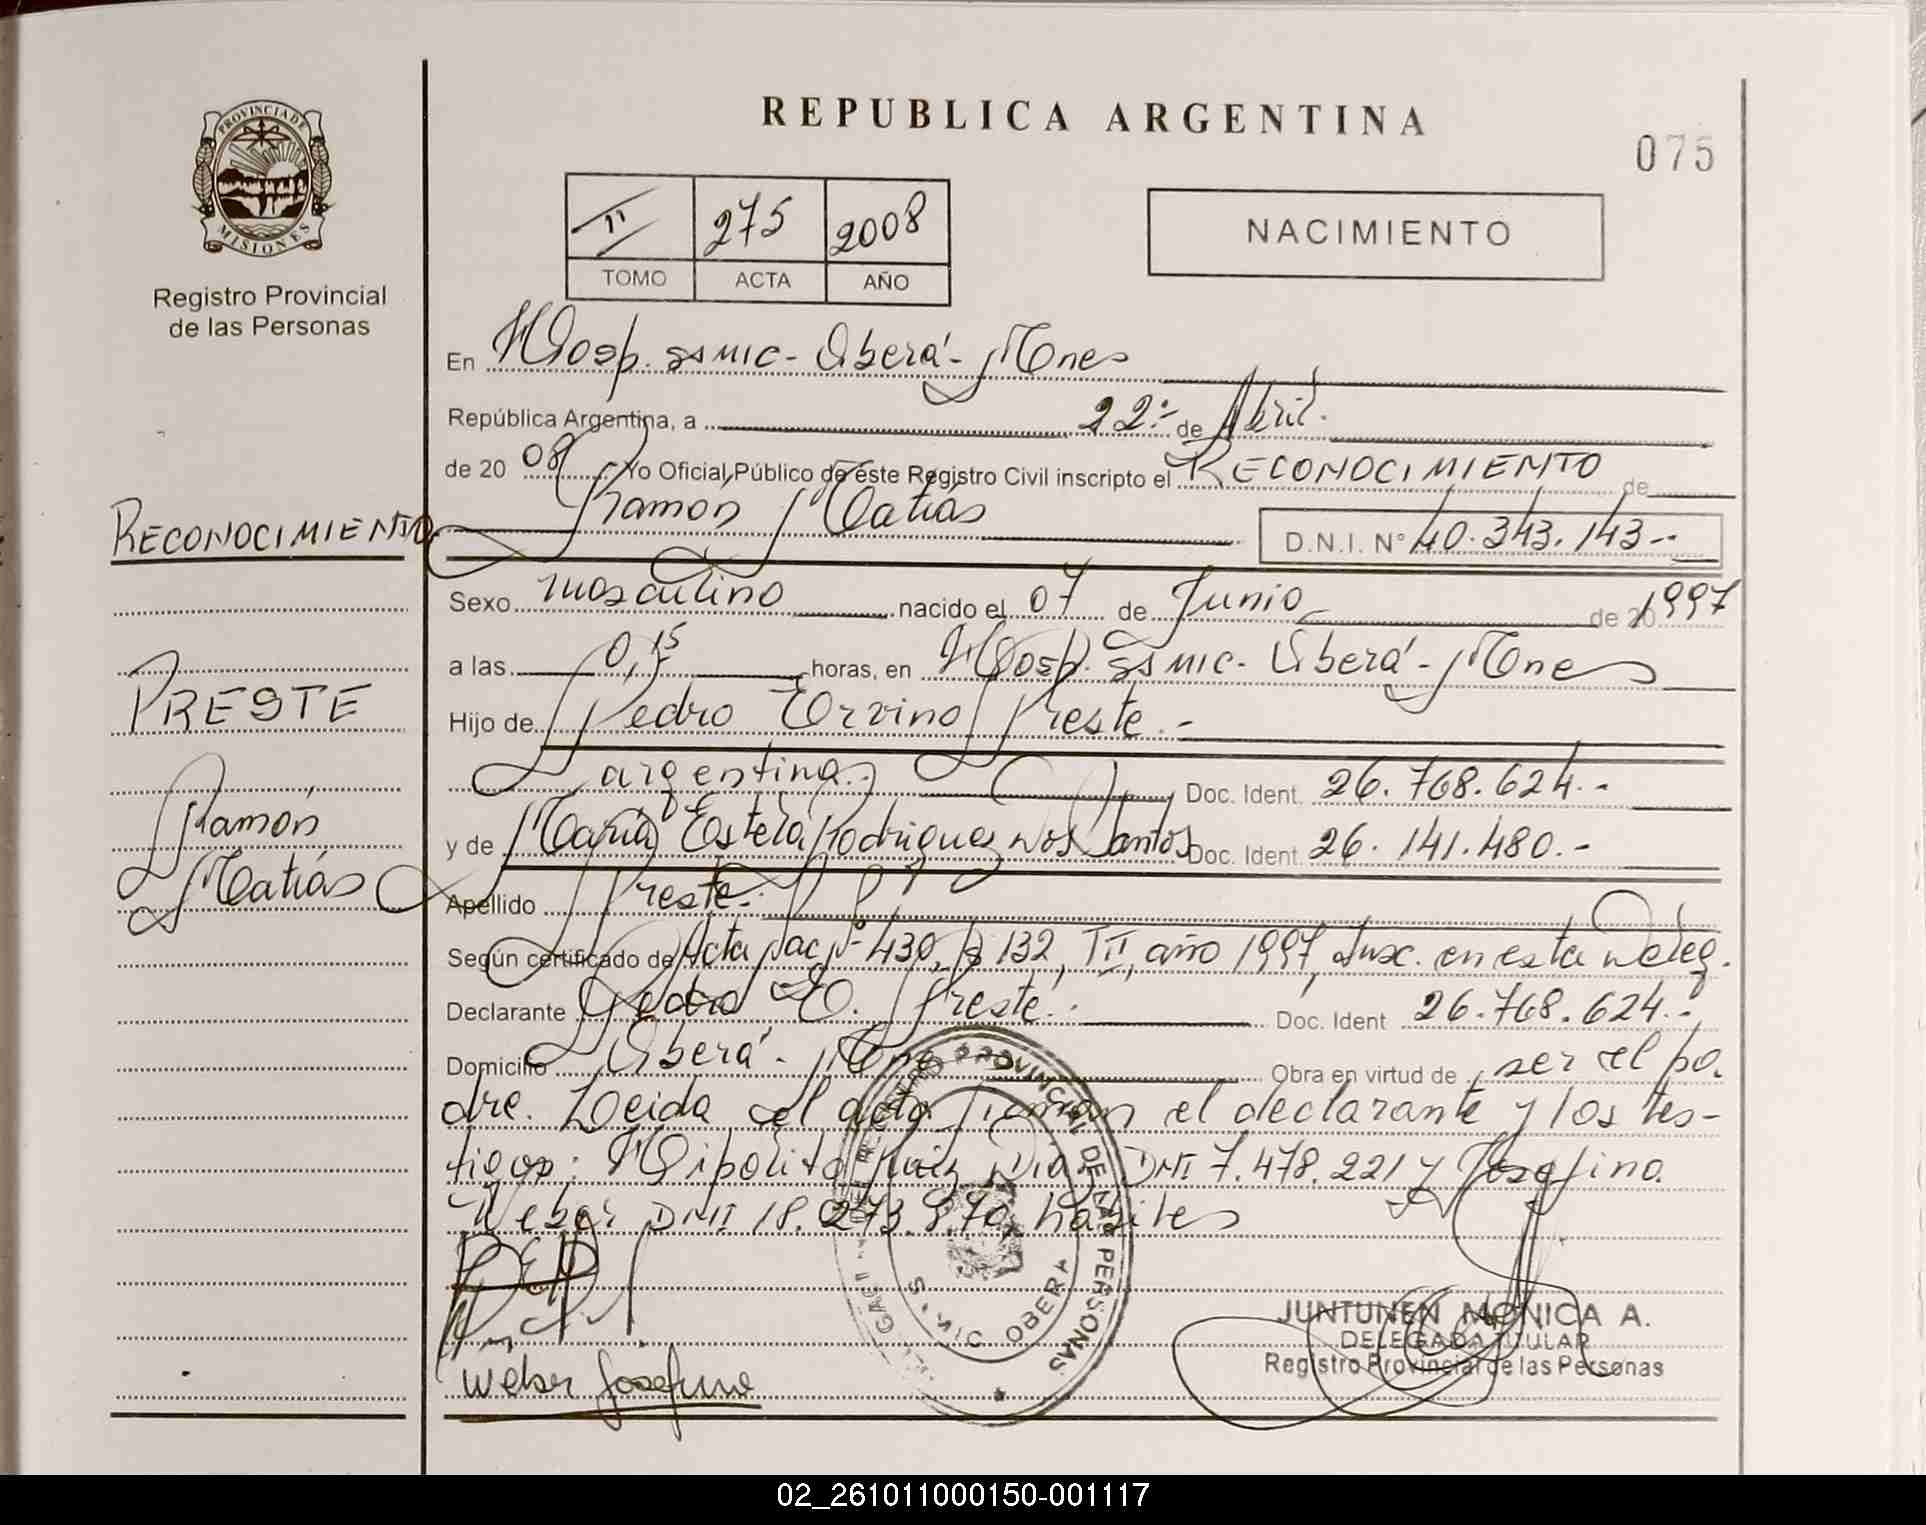 PROVINCIA DE
MISIONES
Registro Provincial
de las Personas
REPUBLICA ARGENTINA
075
II 275 2008
TOMO ACTA AÑO
NACIMIENTO
En Hosp. SAMIC - Oberá - Mnes
República Argentina, a 22 de Abril.
de 20 08 Yo Oficial Público de este Registro Civil inscripto el RECONOCIMIENTO de
Ramón Matías D.N.I. N° 40.343.143.-
Sexo masculino nacido el 07 de Junio de 1997
a las 0,15 horas, en Hosp. SAMIC - Oberá - Mnes
Hijo de Pedro Ervino Preste.-
argentina. Doc. Ident. 26.768.624.-
y de María Estela Rodriguez Dos Santos Doc. Ident. 26.141.480.-
Apellido Preste.
Según certificado de Acta Nac. N° 430, F° 132, TII, año 1997, Insc. en esta Deleg.
Declarante Pedro E. Preste. Doc. Ident 26.768.624.-
Domicilio Oberá - Mnes Obra en virtud de ser el pa-
dre. Leida el acta firman el declarante y los tes-
tigos: Hipólito Ruiz Diaz DNI 7.478.221 y Josefina
Weber DNI 18.273.870, hábiles
Weber Josefina
RECONOCIMIENTO
PRESTE
Ramón
Matías
REGISTRO PROVINCIAL DE LAS PERSONAS
OBERA
JUNTUNEN MONICA A.
DELEGADA TITULAR
Registro Provincial de las Personas
02_261011000150-001117